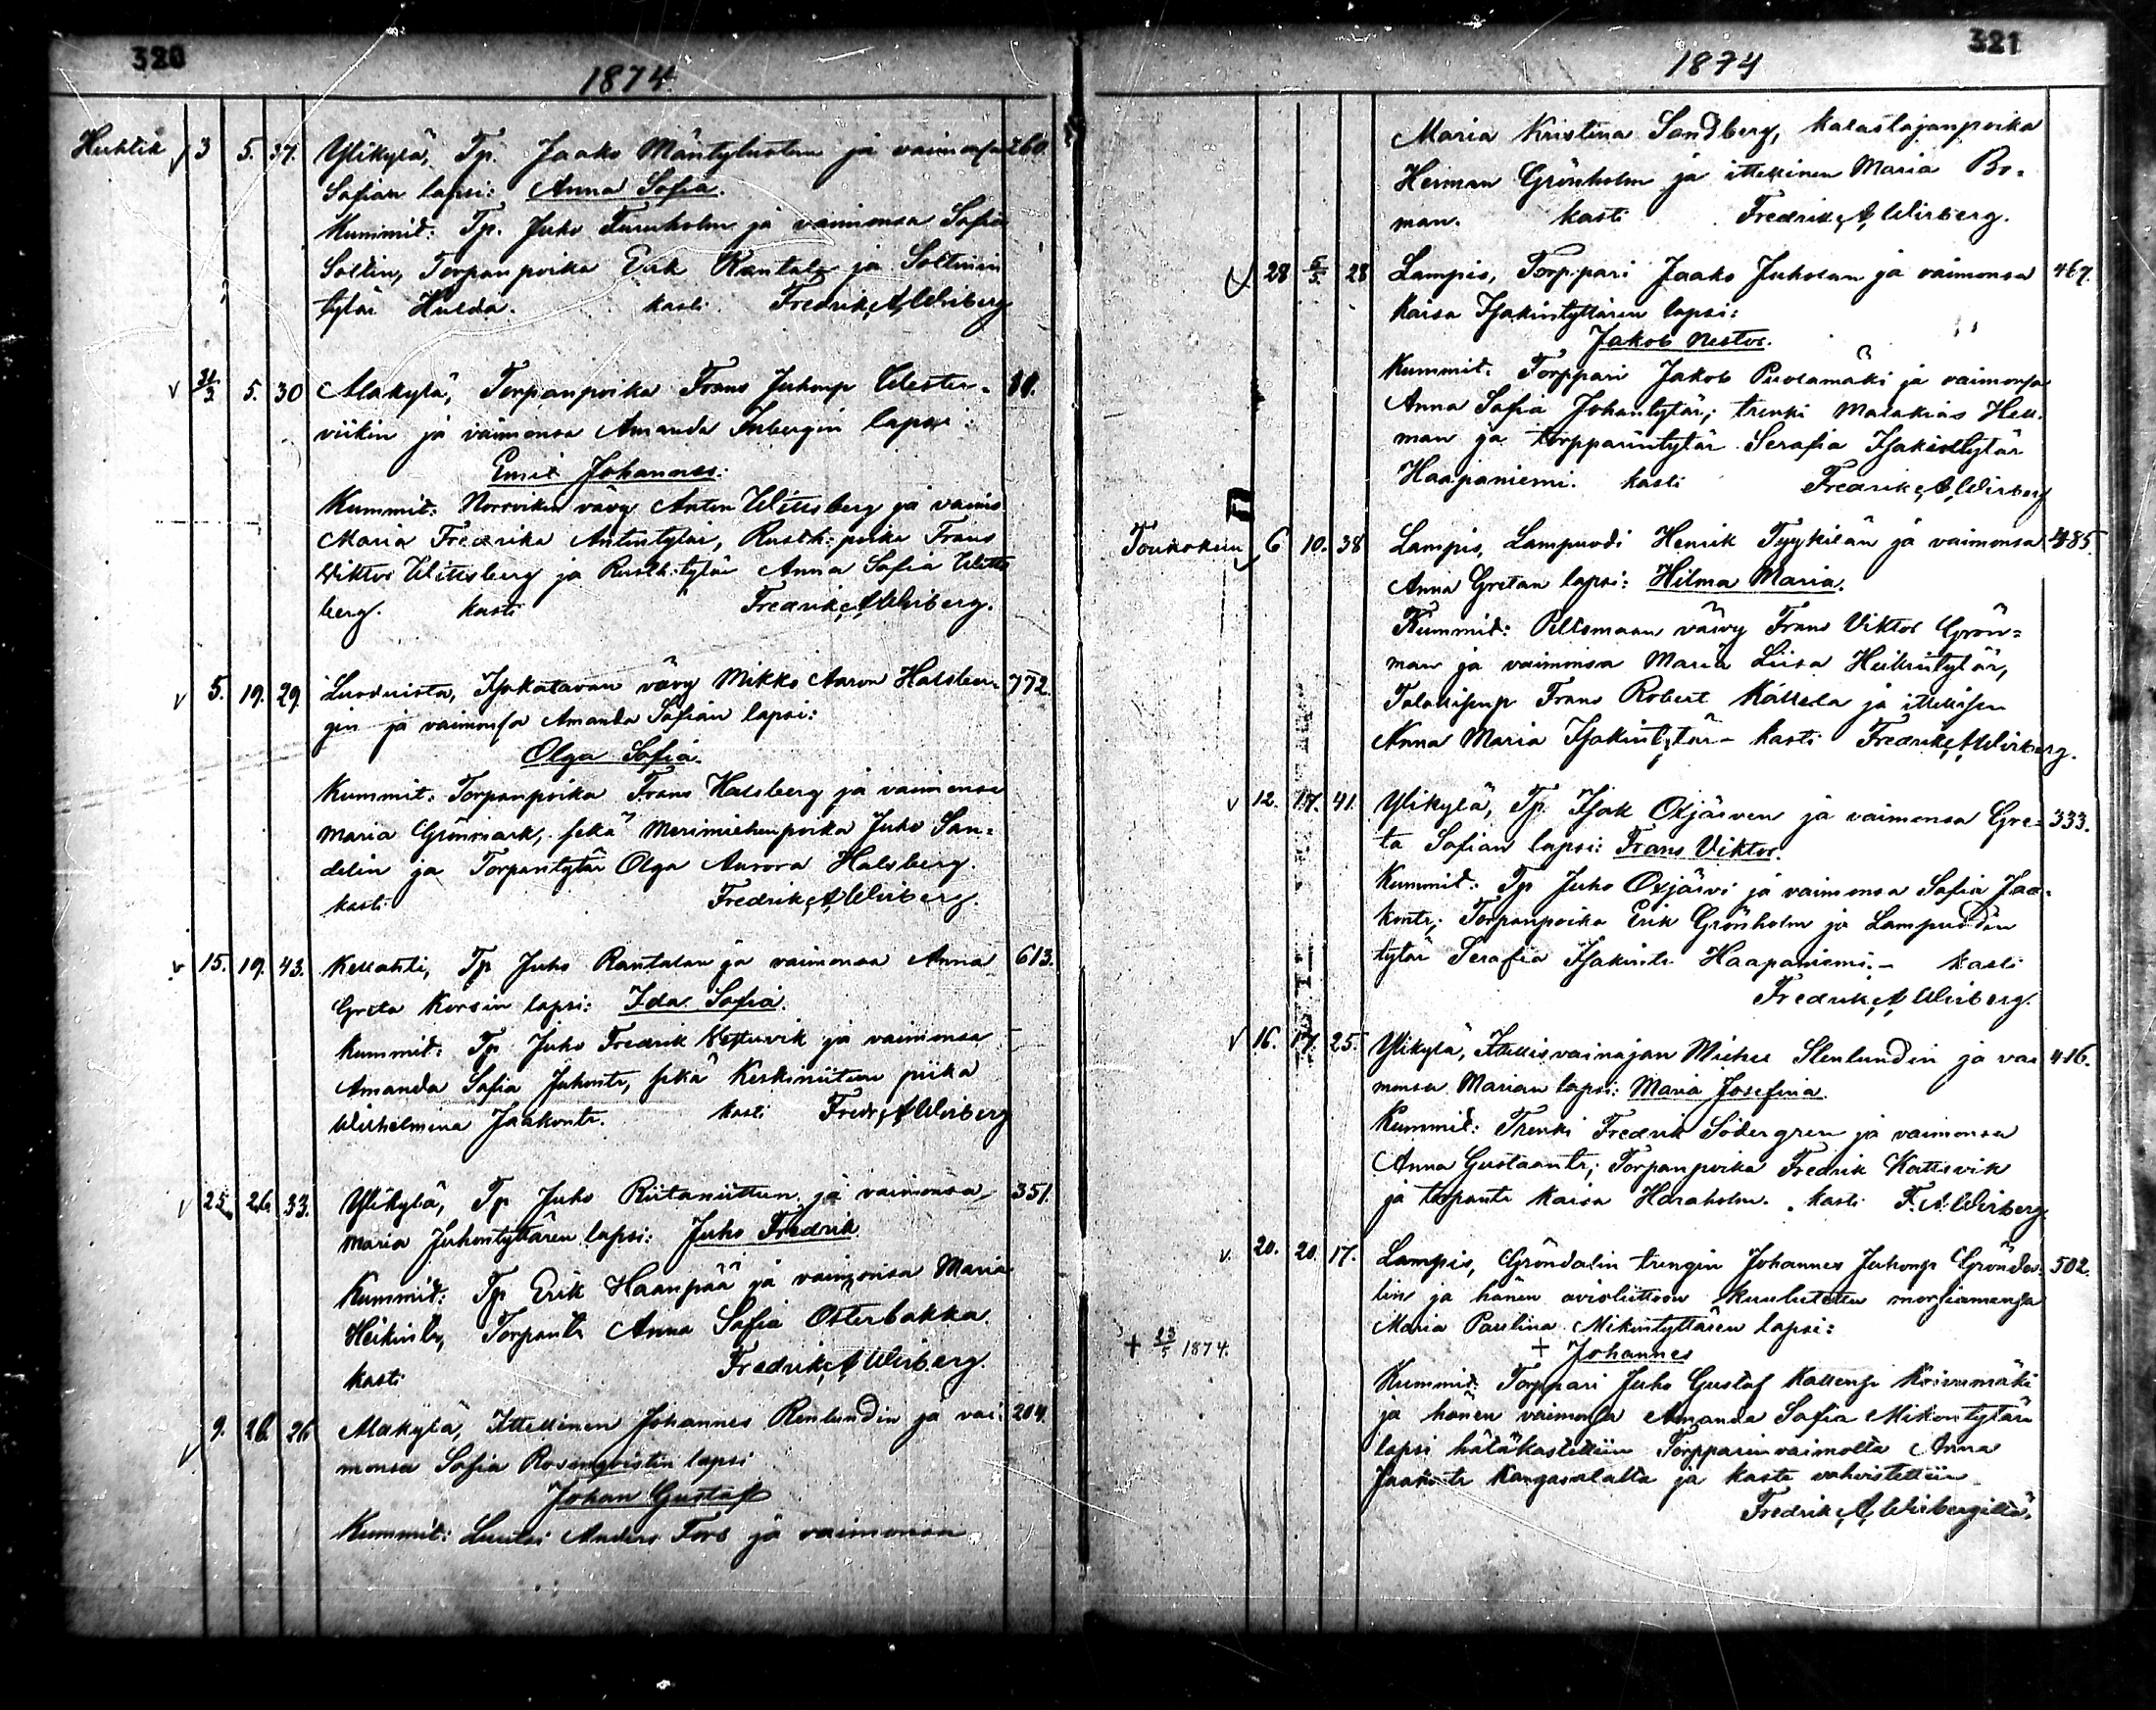 320
1874.
Huhtik 3 5. 37. Ylikylä, Tp. Jaako Mäntyluoton ja vaimonsa 260
Sofian lapsi: Anna Sofia.
Kummit: Tp. Juho Furuholm ja vaimonsa Sofia
Soltin, Torpanpoika Erik Rantala ja Soltinin
tytär Hulda. kasti Fredrik A Wirberg
31/3 5. 30 Alakylä, Torpanpoika Frans Juhonp Wester- 81.
vikin ja vaimonsa Amanda Inbergin lapsi:
Emil Johannes.
Kummit: Norrvikin vävy Anton Wittsberg ja vaimo
Maria Fredrika Antintytär, Rusth: poika Frans
Viktor Wittsberg ja Rusth: tytär Anna Sofia Witts
berg. kasti Fredrik A Wirberg.
5. 19. 29. Luodoista, Isokatavan vävy Mikko Aaron Halsber- 772.
gin ja vaimonsa Amanda Sofian lapsi:
Olga Sofia.
Kummit: Torpanpoika Frans Halsberg ja vaimonsa
Maria Grönmark, sekä Merimiehenpoika Juho San=
delin ja Torpantytär Olga Aurora Halsberg.
kasti Fredrik A Wirberg.
15. 19. 43. Kellahti, Tp Juho Rantalan ja vaimonsa Anna 613.
Greta Korsin lapsi: Ida Sofia.
Kummit: Tp Juho Fredrik ja vaimonsa
Amanda Sofia Juhontr, sekä Keskiniitun piika
Wilhelmina Jaakontr. kasti Fredr A Wirberg
25. 26. 33. Ylikylä, Tp Juho Riitaniittun ja vaimonsa 351.
Maria Juhontyttären lapsi: Juho Fredrik
Kummit: Tp Erik Haanpää ja vaimonsa Maria
Heikintr, Torpantr Anna Sofia Österbakka.
kasti Fredrik A Wirberg.
9. 26. 26 Alakylä, Itellinen Johannes Renlundin ja vai= 204.
monsa Sofia Rosenqvistin lapsi
Johan Gustaf
Kummit: Luotsi Anders Fors ja vaimonsa
321
1874
Maria Kristina Sandberg, kalastajanpoika
Herman Grönholm ja itellinen Maria Bo-
man. kasti Fredrik A Wirberg.
28 5/5 28 Lampis, Torppari Jaako Juholan ja vaimonsa 467.
Kaisa Isakintyttären lapsi:
Jakob Nestor.
Kummit: Torppari Jakob Puolamäki ja vaimonsa
Anna Sofia Johantytär; trenki Malakias Hell-
man ja torpparintytär Serafia Isakintytär
Haapaniemi. kasti Fredrik A Wirberg
Toukokuu 6 10. 38 Lampis, Lampuodi Henrik Tyykilän ja vaimonsa 485.
Anna Gretan lapsi: Hilma Maria.
Kummit: vävy Frans Viktor Grön=
man ja vaimonsa Maria Liisa Heikintytär,
Talollisenp Frans Robert Källela ja itellisen
Anna Maria Isakintytär - kasti Fredrik A Wirberg.
12. 17. 41. Ylikylä, Tp. Isak Oxjärven ja vaimonsa Gre= 333.
ta Sofian lapsi: Frans Viktor.
Kummit: Tp Juho Oxjärvi ja vaimonsa Sofia Jaa-
kontr; Torpanpoika Erik Grönholm ja Lampuodin
tytär Serafia Isakintr Haapaniemi. - kasti
Fredrik A Wirberg.
16. 17. 25. Ylikylä, Itellisvainajan Michel Stenlundin ja vai 416.
monsa Marian lapsi: Maria Josefina.
Kummit: Trenki Fredrik Södergren ja vaimonsa
Anna Gustaantr; Torpanpoika Fredrik Kattisvik
ja torpantr Kaisa Haraholm. kasti F. A. Wirberg.
20. 20. 17. Lampis, Gröndalin trengin Johannes Juhonp Gröndа- 502.
lin ja hänen avioliittoon kuulutetun morsiamensa
Maria Paulina Mikintyttären lapsi:
+ 23/5 1874. + Johannes
Kummit: Torppari Juho Gustaf Kallenp Koivumäki
ja hänen vaimonsa Amanda Sofia Mikontytär
lapsi hätäkastettiin Torpparinvaimolta Anna
Jaakontr Kangasalalta ja kaste vahvistettiin
Fredrik A Wirbergiltä.